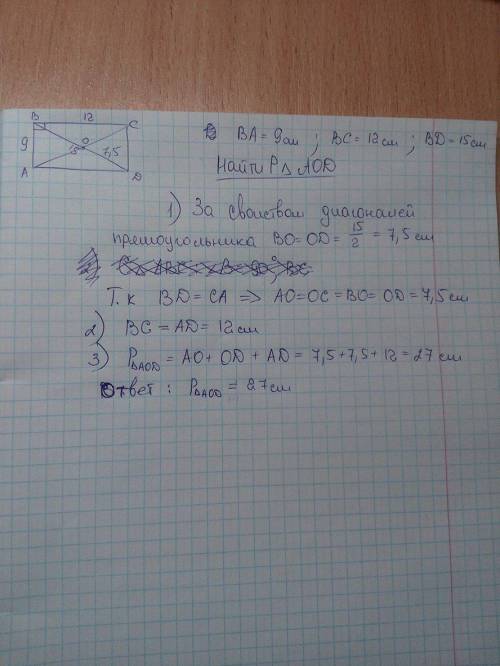 B 12 C
9 O
15 7,5
A D
BA = 9см ; BC = 12см ; BD = 15см
Найти P△ AOD
1) За свойством диагоналей
прямоугольника BO = OD = 15/2 = 7,5 см
Т.к BD = CA => AO = OC = BO = OD = 7,5 см
2) BC = AD = 12 см
3) P△AOD = AO + OD + AD = 7,5 + 7,5 + 12 = 27 см
Ответ : P△AOD = 27 см